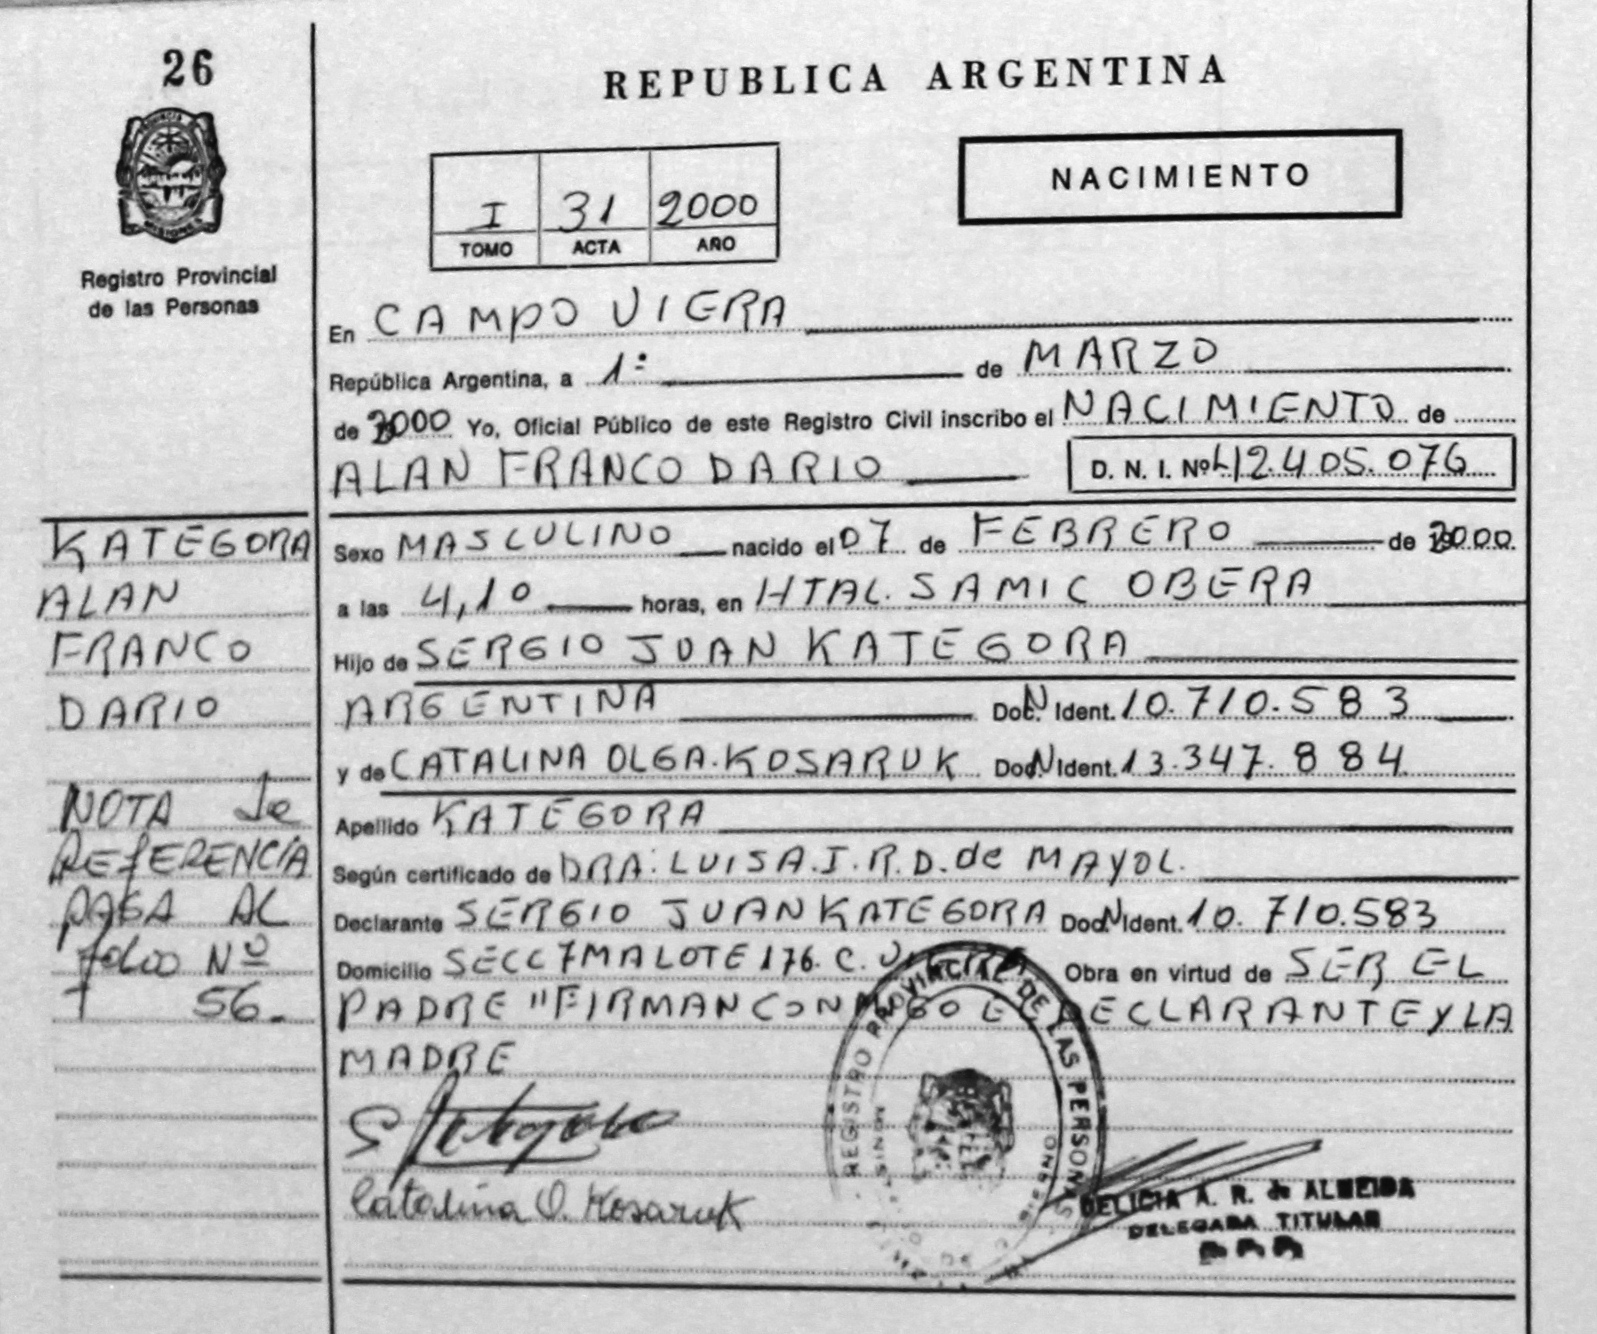 26
PROVINCIA
MISIONES
Registro Provincial
de las Personas
REPUBLICA ARGENTINA
NACIMIENTO
I 31 2000
TOMO ACTA AÑO
En CAMPO VIERA
República Argentina, a 1º de MARZO
de 2000 Yo, Oficial Público de este Registro Civil inscribo el NACIMIENTO de
ALAN FRANCO DARIO D. N. I. Nº 42.405.076
Sexo MASCULINO nacido el 07 de FEBRERO de 2000
a las 4,10 horas, en HTAL. SAMIC OBERA
Hijo de SERGIO JUAN KATEGORA
ARGENTINA Doc. N Ident. 10.710.583
y de CATALINA OLGA. KOSARUK Doc. N Ident. 13.347.884
Apellido KATEGORA
Según certificado de DRA: LUISA.I.R.D. de MAYOL.
Declarante SERGIO JUAN KATEGORA Doc. N Ident. 10.710.583
Domicilio SECC 7MA LOTE 176. C. VIERA Obra en virtud de SER EL
PADRE "FIRMAN CONMIGO EL DECLARANTE Y LA
MADRE
S Kategora
Catalina O. Kosaruk
REGISTRO PROVINCIAL DE LAS PERSONAS
DELICIA A. R. de ALMEIDA
DELEGADA TITULAR
KATEGORA
ALAN
FRANCO
DARIO
NOTA de
REFERENCIA
PASA AL
folio Nº
56.